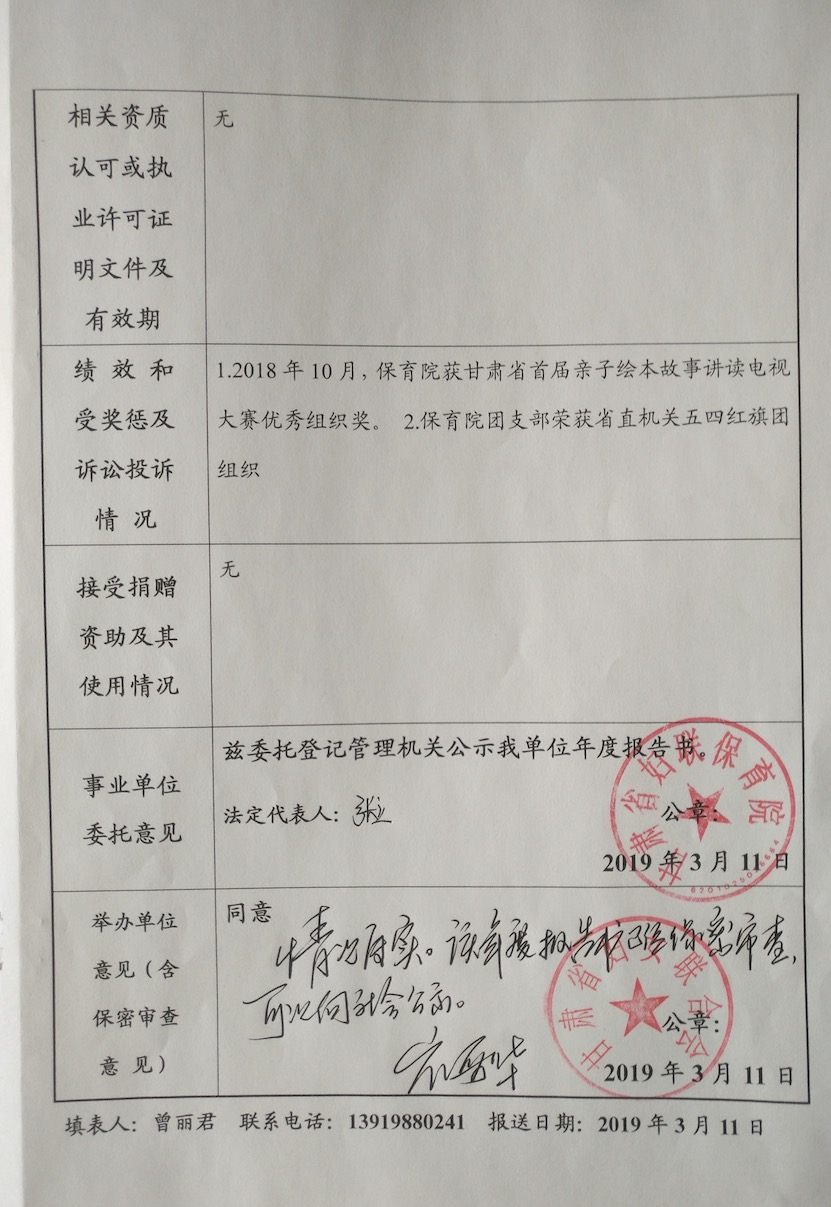 相关资质
认可或执
业许可证
明文件及
有效期
无
绩 效 和
受奖惩及
诉讼投诉
情 况
1.2018 年 10 月，保育院获甘肃省首届亲子绘本故事讲读电视
大赛优秀组织奖。 2.保育院团支部荣获省直机关五四红旗团
组织
接受捐赠
资助及其
使用情况
无
事业单位
委托意见
兹委托登记管理机关公示我单位年度报告书。
法定代表人：
公章：
2019 年 3 月 11 日
甘肃省妇联保育院
举办单位
意见（含
保密审查
意 见）
同意
情况属实。该年度报告书已经保密审查，
可以向社会公示。
公章：
2019 年 3 月 11 日
甘肃省妇女联合会
填表人：曾丽君 联系电话：13919880241 报送日期：2019 年 3 月 11 日